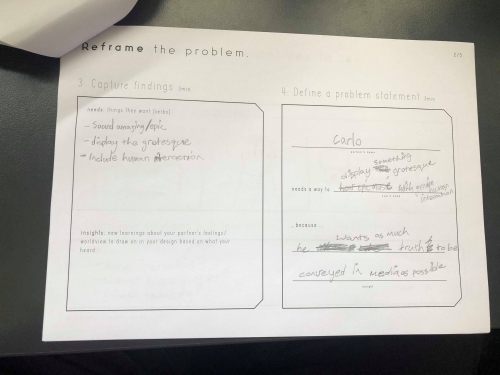 Reframe the problem.
2/5
3. Capture findings 3min
needs: things they want (verbs)
- Sound amazing/epic
- display the grotesque
- Include human
insights: new learnings about your partner's feelings/
worldview to draw on in your design based on what your
heard
4. Define a problem statement 3min
carlo
partner's name
something
display grotesque
needs a way to with
human
because...
wants as much
he truth to be
conveyed in media as possible
insight